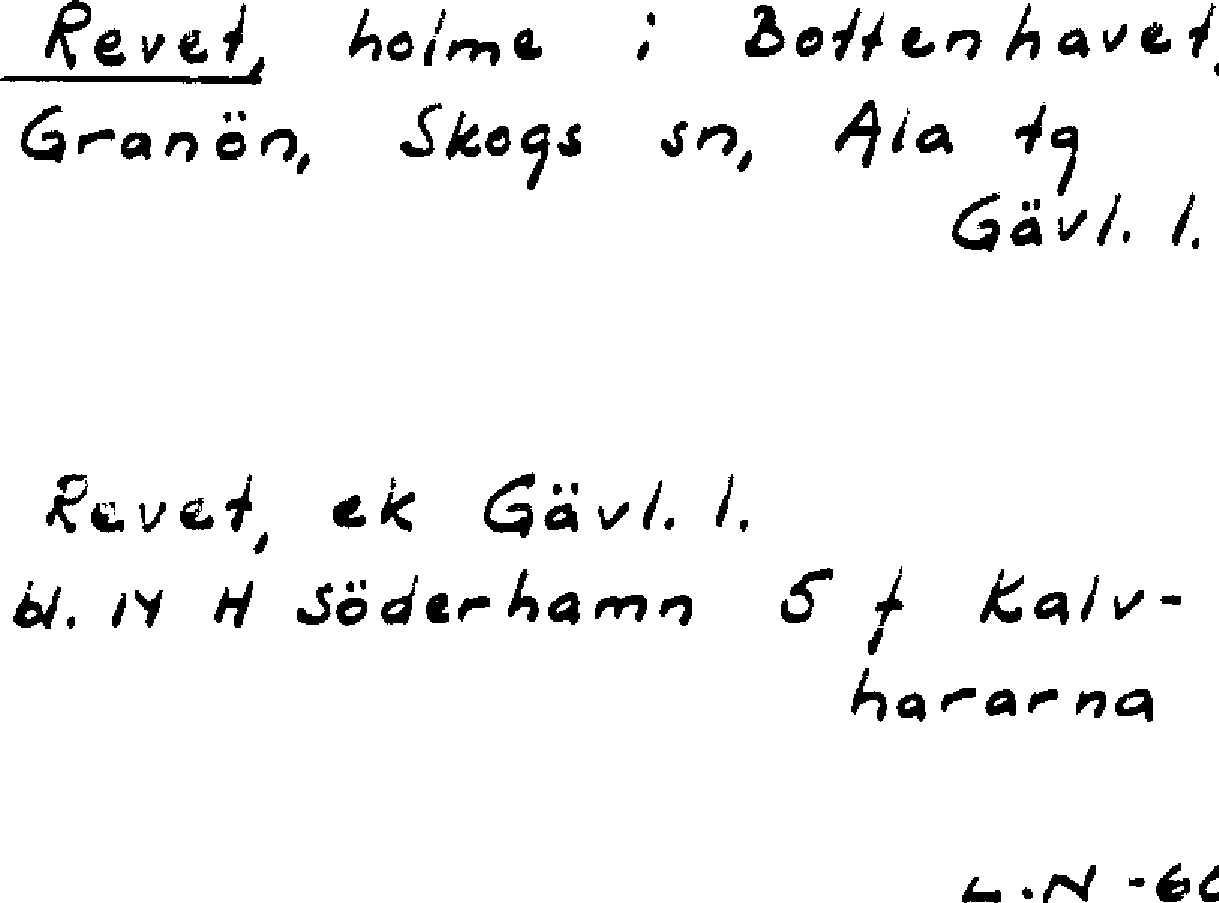 Revet, holme i Bottenhavet,
Granön, Skogs sn, Ala tg
Gävl. l.
Revet, ek Gävl. l.
bl. 14 H Söderhamn 5 f Kalv-
hararna
L.N